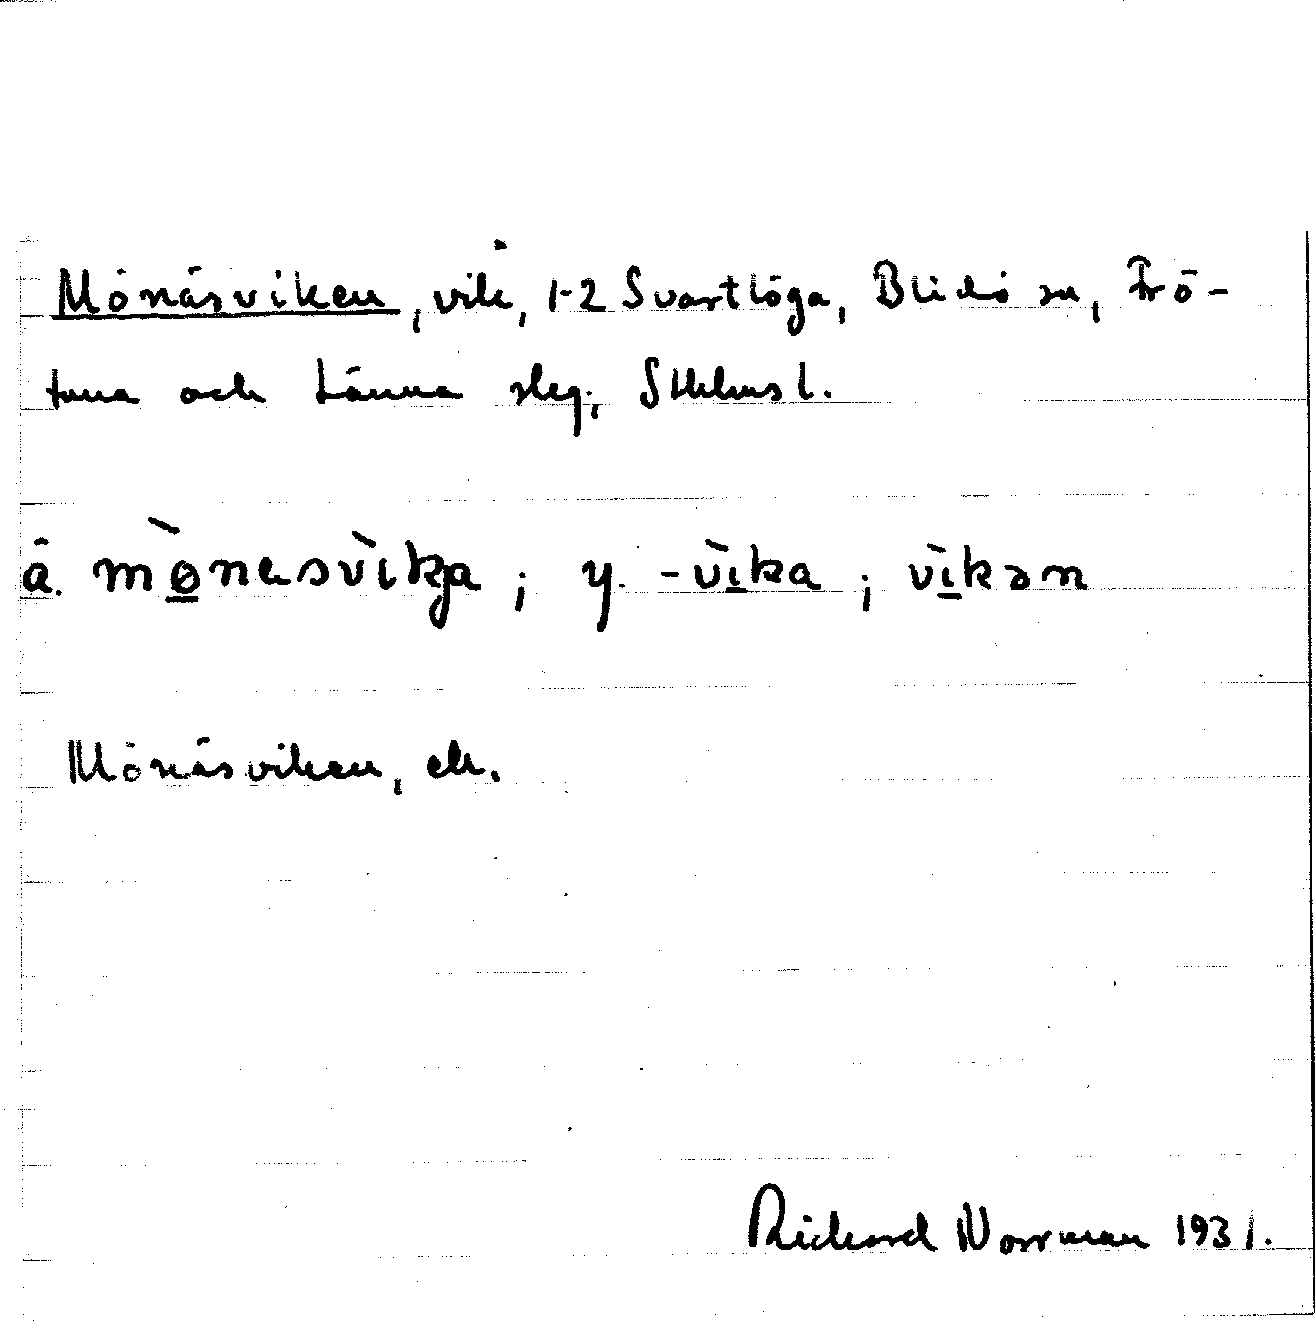 Mönäsviken, vik, 1-2 Svartlöga, Blidö sn, Frö-
tuna och Länna skg, Sthlms l.
ä. mø̀nesvìkja ; y. -vìka ; vìkən
Mönäsviken, ek.
Rickard Norrman 1931.